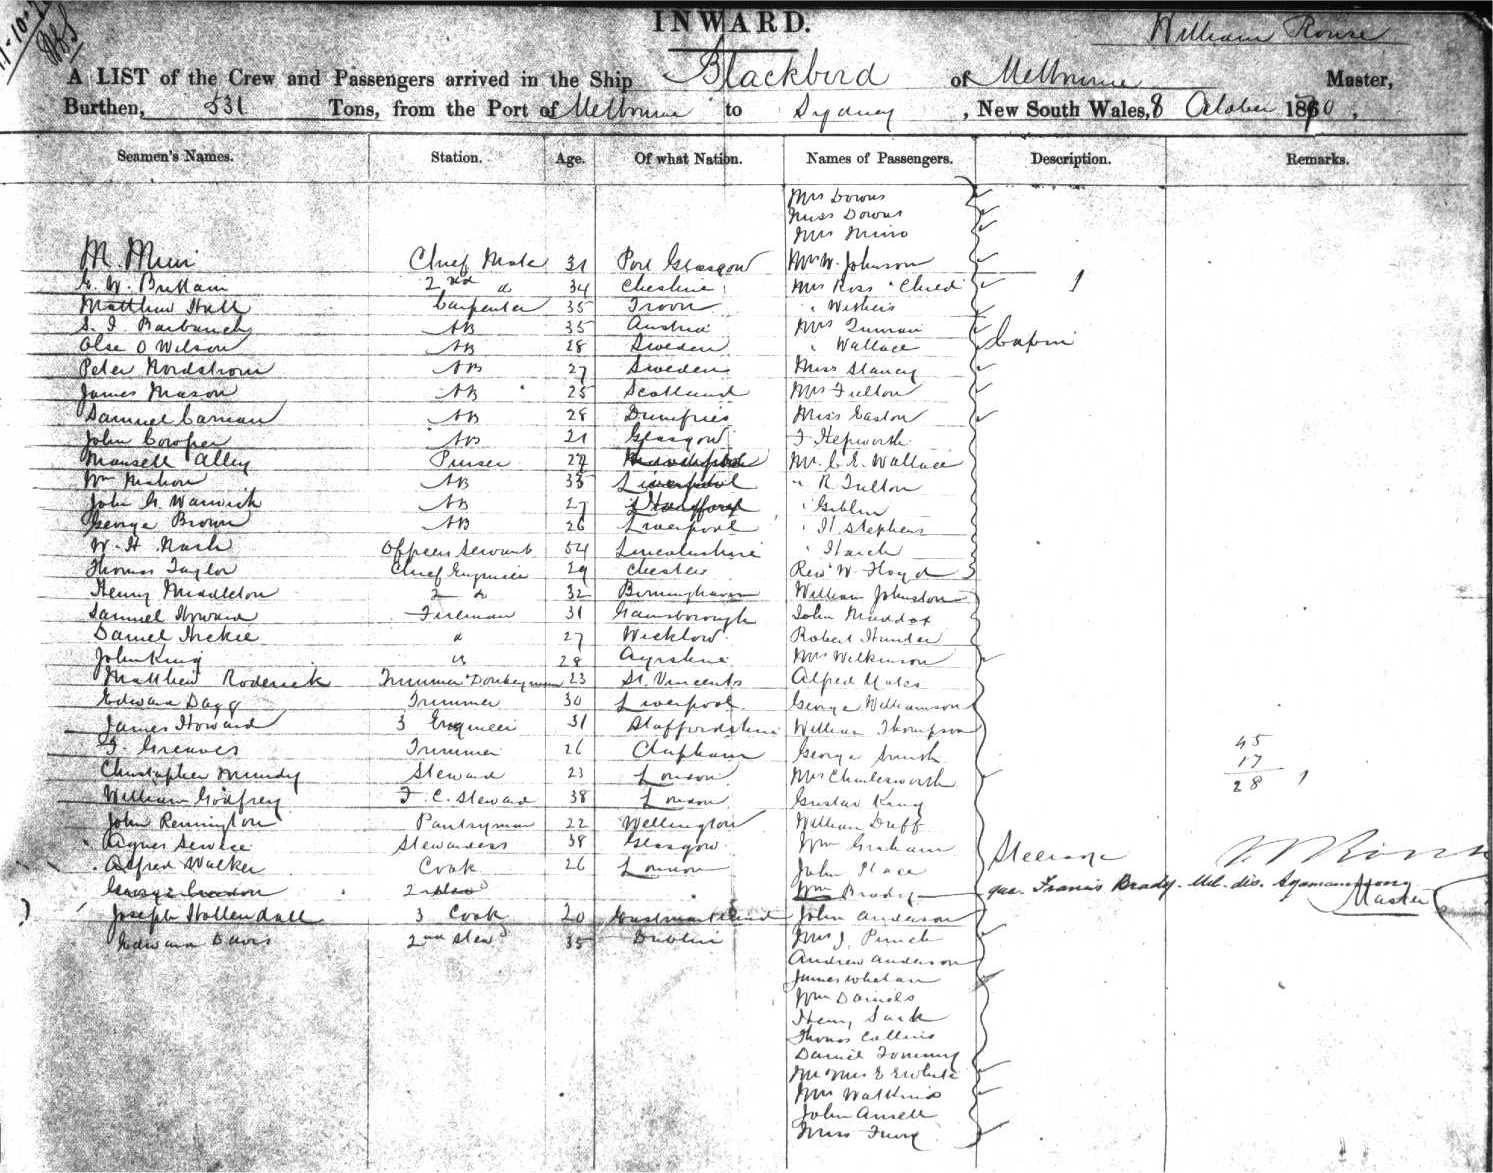 INWARD.
William Rouse
A LIST of the Crew and Passengers arrived in the Ship Blackbird of Melbourne Master,
Burthen, 531 Tons, from the Port of Melbourne to Sydney, New South Wales, 8 October 1870,
Seamen's Names. Station. Age. Of what Nation. Names of Passengers. Description. Remarks.
Mrs Downs
Miss Downs
Mrs
M. Muir Chief Mate 31 Port Glasgow Mrs W. Johnson
G. W. Brittain 2nd " 34 Cheshire Mrs Ross & Child 1
Matthew Hall Carpenter 35 Troon " Withers
S. J. AB 35 Austria Mrs
Olse O Wilson AB 28 Sweden " Wallace Cabin
Peter Nordstrom AB 27 Sweden Miss
James Mason AB 25 Scotland Mrs Fulton
Samuel AB 28 Dumfries Miss Easton
John Cowper AB 21 Glasgow J Hepworth
Mansell Alley Purser 27 Mr. C. E. Wallace
Wm Mahon AB 33 Liverpool " R. Fulton
John G. Warwick AB 27 " Giblin
George Brown AB 26 Liverpool " H Stephens
W. H. Nash Officers Servant 54 Lincolnshire "
Thomas Taylor Chief Engineer 29 Chester Revd W. Floyd
Henry Middleton 2 " 32 Birmingham William Johnston
Samuel Howard Fireman 31 Gainsborough John Maddox
Daniel Hickie " 27 Wicklow Robert Hunter
John King " 28 Ayrshire Mrs Wilkinson
Matthew Roderick Trimmer & Donkeyman 23 St. Vincents Alfred
Edward Dagg Trimmer 30 Liverpool George Williamson
James Howard 3 Engineer 31 Staffordshire William Thompson
J. Greaves Trimmer 26 Clapham George Smith 45
17
Christopher Mundy Steward 23 London Mrs Charlesworth 28 1
William Godfrey F. C. Steward 38 London Gustav King
John Rennington Pantryman 22 Wellington William Duff
Agnes Service Stewardess 38 Glasgow Wm Graham Steerage
Alfred Walker Cook 26 London John Place
George 2 Wm Brady Francis Brady
Joseph Hollendall 3 Cook 20 John Anderson Master
Edward Davis 2nd Stewd 35 Dublin Mrs J. Punch
Andrew Anderson
James Whelan
Wm Daniels
Henry Sack
Thomas Collins
Daniel
Mr & Mrs E
Mrs Watkins
John Ansell
Miss